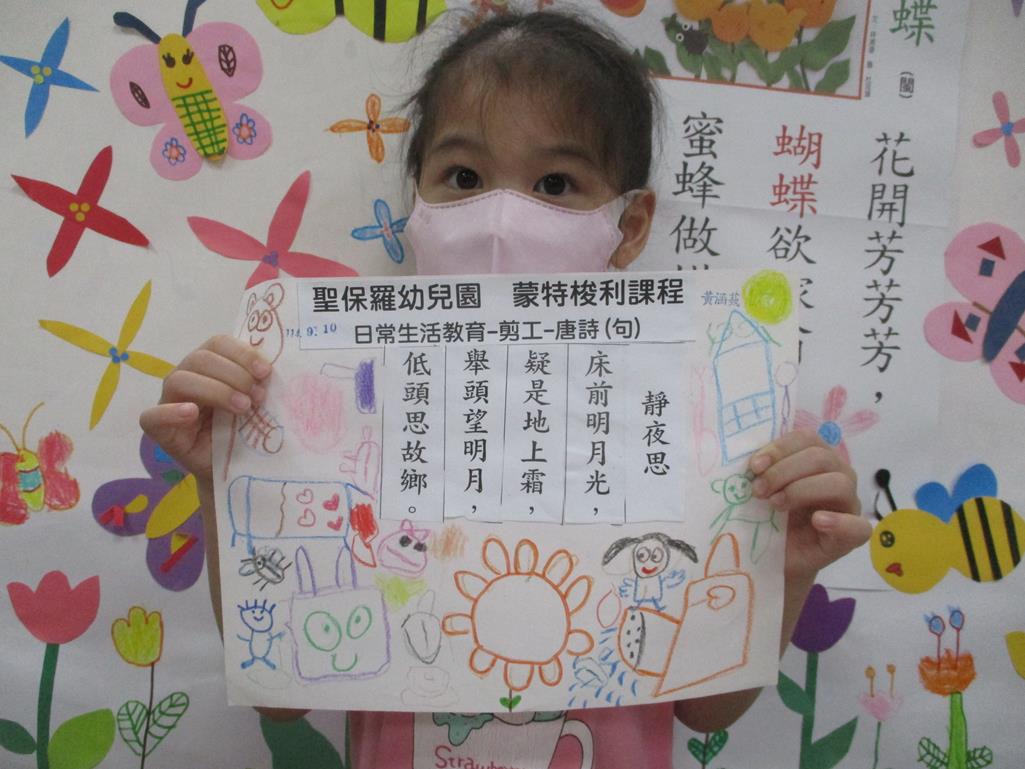 蝶
(閩)
花開芳芳芳，
蝴蝶欲
蜜蜂做
聖保羅幼兒園　蒙特梭利課程
日常生活教育-剪工-唐詩(句)
靜夜思
床前明月光，
疑是地上霜，
舉頭望明月，
低頭思故鄉。